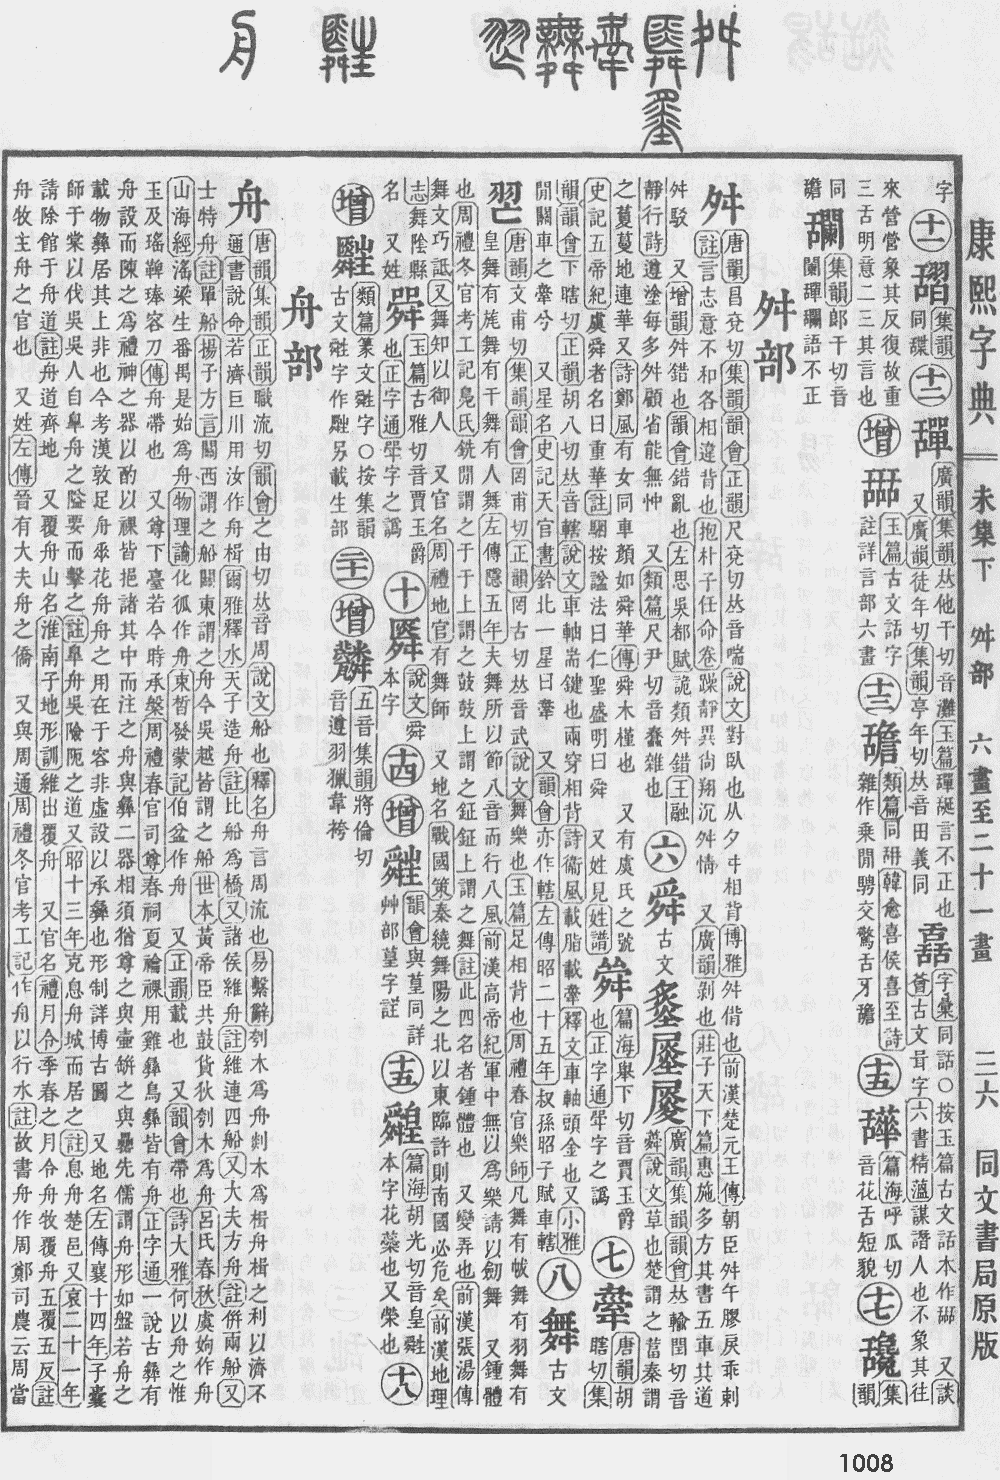 康熙字典 未集下 舛部 六畫至二十一畫 三六 同文書局原版
字 十一 謵 集韻
同碟 十二
廣韻集韻𠀤他干切音灘玉篇譂誕言不正也
又廣韻徒年切集韻亭年切𠀤音田義同
字彙同話○按玉篇古文話本作
來嘗嘗象其反復故重
三舌明意二三其言也 增
玉篇古文話字
註詳言部六畫 十三
類篇同 韓愈喜侯喜至詩
雜作乘閒騁交驚舌牙 十五
篇海呼瓜切
音花舌短貌 十七
集韻
同 集韻郎干切音
闌譂讕語不正
舛部
舛 唐韻昌兗切集韻韻會正韻尺兗切𠀤音喘說文對臥也从夕㐄相背博雅舛偝也前漢楚元王傳朝臣舛午膠戾乖剌
註言志意不和各相違背也抱朴子任命卷躁靜異尙翔沉舛情 又廣韻剥也莊子天下篇惠施多方其書五車其道
舛駮 又增韻舛錯也韻會錯亂也左思吳都賦詭類舛錯王融
靜行詩遵塗每多舛顧省能無忡 又類篇尺尹切音蠢雜也 六 舜 古文
廣韻集韻韻會𠀤輸閏切音
蕣說文草也楚謂之葍秦謂
之藑蔓地連華又詩鄭風有女同車顏如舜華傳舜木槿也 又有虞氏之號
史記五帝紀虞舜者名曰重華註駰按諡法曰仁聖盛明曰舜 又姓見姓譜
篇海舉下切音賈玉爵
也正字通斝字之譌 七 舝 唐韻胡
瞎切集
韻韻會下瞎切正韻胡八切𠀤音轄說文車軸耑鍵也兩穿相背詩衞風載脂載舝釋文車軸頭金也又小雅
閒關車之舝兮 又星名史記天官書鈐北一星曰舝 又韻會亦作轄左傳昭二十五年叔孫昭子賦車轄 八 舞 古文
唐韻文甫切集韻韻會罔甫切正韻罔古切𠀤音武說文舞樂也玉篇足相背也周禮春官樂師凡舞有帗舞有羽舞有
皇舞有旄舞有干舞有人舞左傳隱五年夫舞所以節八音而行八風前漢高帝紀軍中無以爲樂請以劒舞 又鍾體
也周禮冬官考工記鳧氏銑閒謂之于于上謂之鼓鼓上謂之鉦鉦上謂之舞註此四名者鍾體也 又變弄也前漢張湯傳
舞文巧詆又舞知以御人 又官名周禮地官有舞師 又地名戰國策秦繞舞陽之北以東臨許則南國必危矣前漢地理
志舞陰縣 又姓 玉篇古雅切音賈玉爵
也正字通斝字之譌 十 說文舜
本字 十四 增 韻會與葟同詳
艸部葟字註 十五 篇海胡光切音皇
本字花蘂也又榮也 十八
增 類篇篆文 字○按集韻
古文 字作 另載生部 二十一 增 五音集韻將倫切
音遵羽獵韋袴
舟部
舟 唐韻集韻正韻職流切韻會之由切𠀤音周說文船也釋名舟言周流也易繫辭刳木爲舟剡木爲楫舟楫之利以濟不
通書說命若濟巨川用汝作舟楫爾雅釋水天子造舟註比船爲橋又諸侯維舟註維連四船又大夫方舟註倂兩船又
士特舟註單船揚子方言關西謂之船關東謂之舟今吳越皆謂之船世本黃帝臣共鼓貨狄刳木爲舟呂氏春秋虞姁作舟
山海經滛梁生番禺是始爲舟物理論化狐作舟束晳發蒙記伯益作舟 又正韻載也 又韻會帶也詩大雅何以舟之惟
玉及瑤鞞琫容刀傳舟帶也 又尊下臺若今時承槃周禮春官司尊彝春祠夏禴祼用雞彝鳥彝皆有舟正字通一說古彝有
舟設而陳之爲禮神之器以酌以祼皆挹諸其中而注之舟與彝二器相須猶尊之與壷缾之與罍先儒謂舟形如盤若舟之
載物彝居其上非也今考漢敦足舟㿼花舟舟之用在于容非虛設以承彝也形制詳博古圖 又地名左傳襄十四年子囊
師于棠以伐吳吳人自臯舟之隘要而擊之註臯舟吳險阨之道又昭十三年克息舟城而居之註息舟楚邑又哀二十一年
請除館于舟道註舟道齊地 又覆舟山名淮南子地形訓維出覆舟 又官名禮月令季春之月令舟牧覆舟五覆五反註
舟牧主舟之官也 又姓左傳晉有大夫舟之僑 又與周通周禮冬官考工記作舟以行水註故書舟作周鄭司農云周當
1008